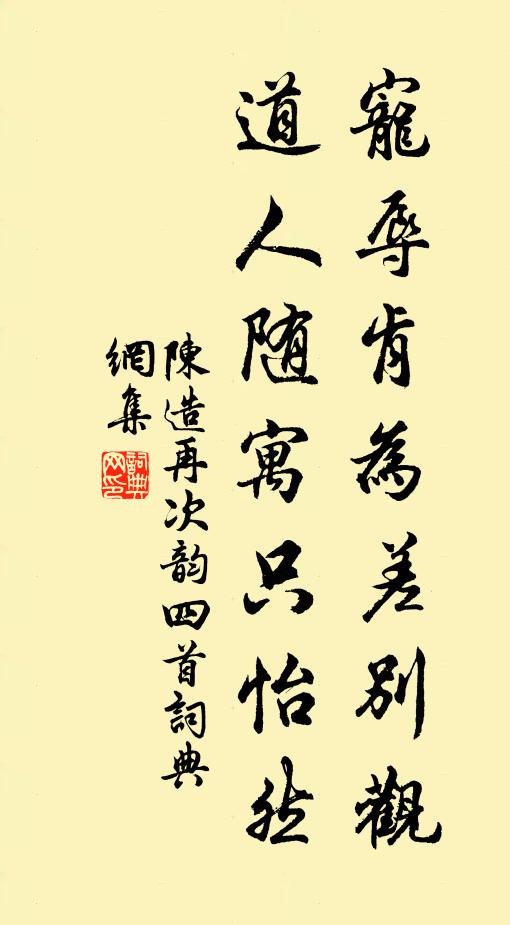 寵辱肯為差別觀
道人随寓只怡然
陳造再次韵四首詞典
網集
詞典网印